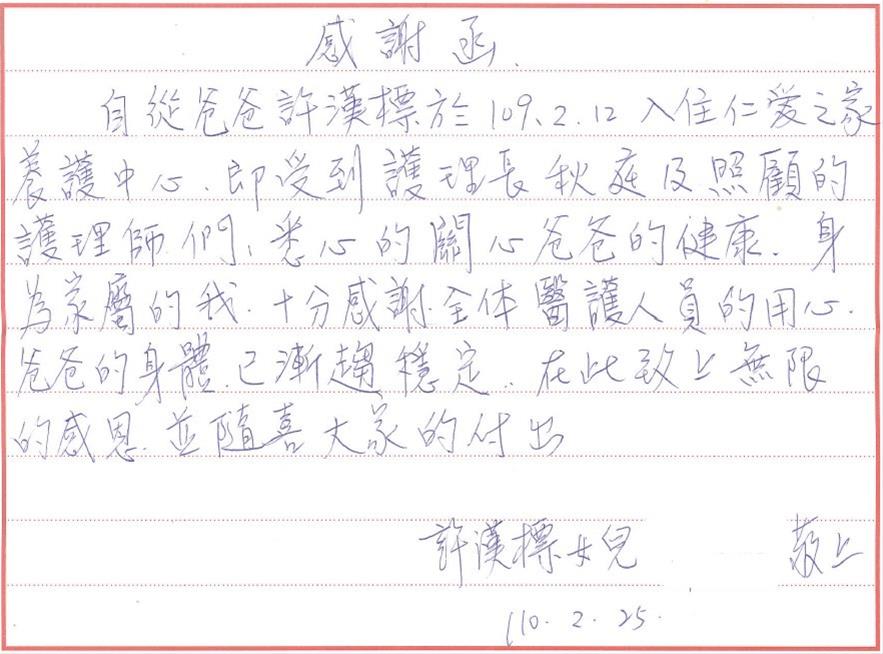 感謝函.
自從爸爸許漢標於109.2.12入住仁愛之家
養護中心.即受到護理長秋庭及照顧的
護理師們、悉心的關心爸爸的健康.身
為家屬的我.十分感謝全体醫護人員的用心.
爸爸的身體.已漸趨穩定..在此致上無限
的感恩.並隨喜大家的付出
許漢標女兒 敬上
110.2.25.